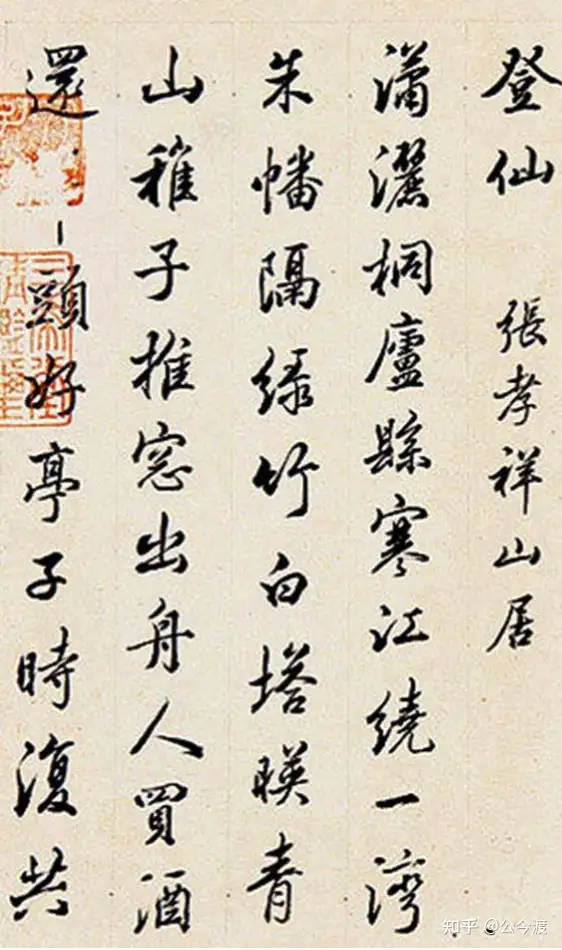 登仙 張孝祥山居
瀟灑桐廬縣寒江繞一灣
朱幡隔綠竹白塔暎青
山稚子推窓出舟人買酒
還
頭好亭子時復共
知乎 @公今渡